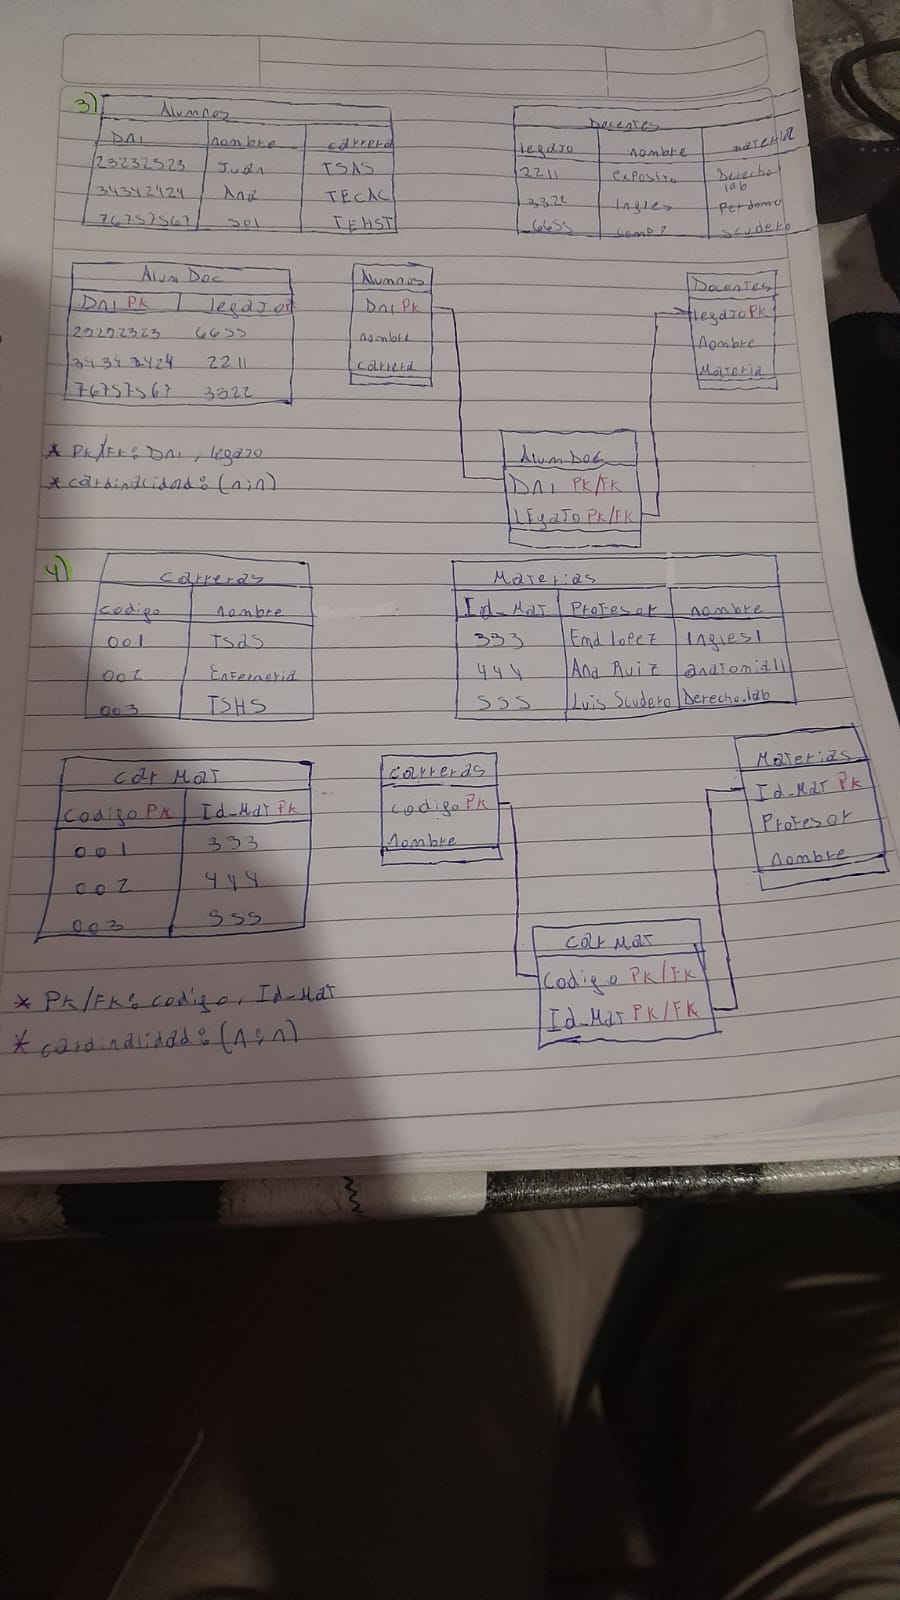 3)
Alumnos
DNI nombre carrera
23232323 Juan TSAS
34342424 Ana TECAC
76757567 Sol TEHST
Docentes
legajo nombre materia
2211 exposito Derecho lab
3322 Ingles Perdomo
6655 Scudero
Alum Doc
DNI PK legajo
23232323 6655
34342424 2211
76757567 3322
Alumnos
DNI PK
nombre
carrera
Docentes
legajo PK
Nombre
Materia
Alum Doc
DNI PK/FK
LEgaJo PK/FK
* PK/FK: DNI, legajo
* cardinalidad: (n;n)
4)
Carreras
codigo nombre
001 TSAS
002 Enfemeria
003 TSHS
Materias
Id_Mat Profesor nombre
333 Ema Lopez Ingles I
444 Ana Ruiz anatomia II
555 Luis Scudero Derecho.lab
Car Mat
Codigo PK Id_Mat PK
001 333
002 444
003 555
Carreras
codigo PK
Nombre
Materias
Id_Mat PK
Profesor
nombre
Car Mat
Codigo PK/FK
Id_Mat PK/FK
* PK/FK: codigo, Id_Mat
* cardinalidad: (n;n)